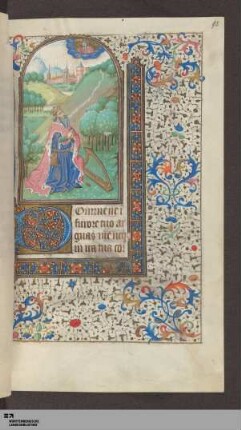 Omine ne i
furore tuo ar
guas me neq
in ira tua co